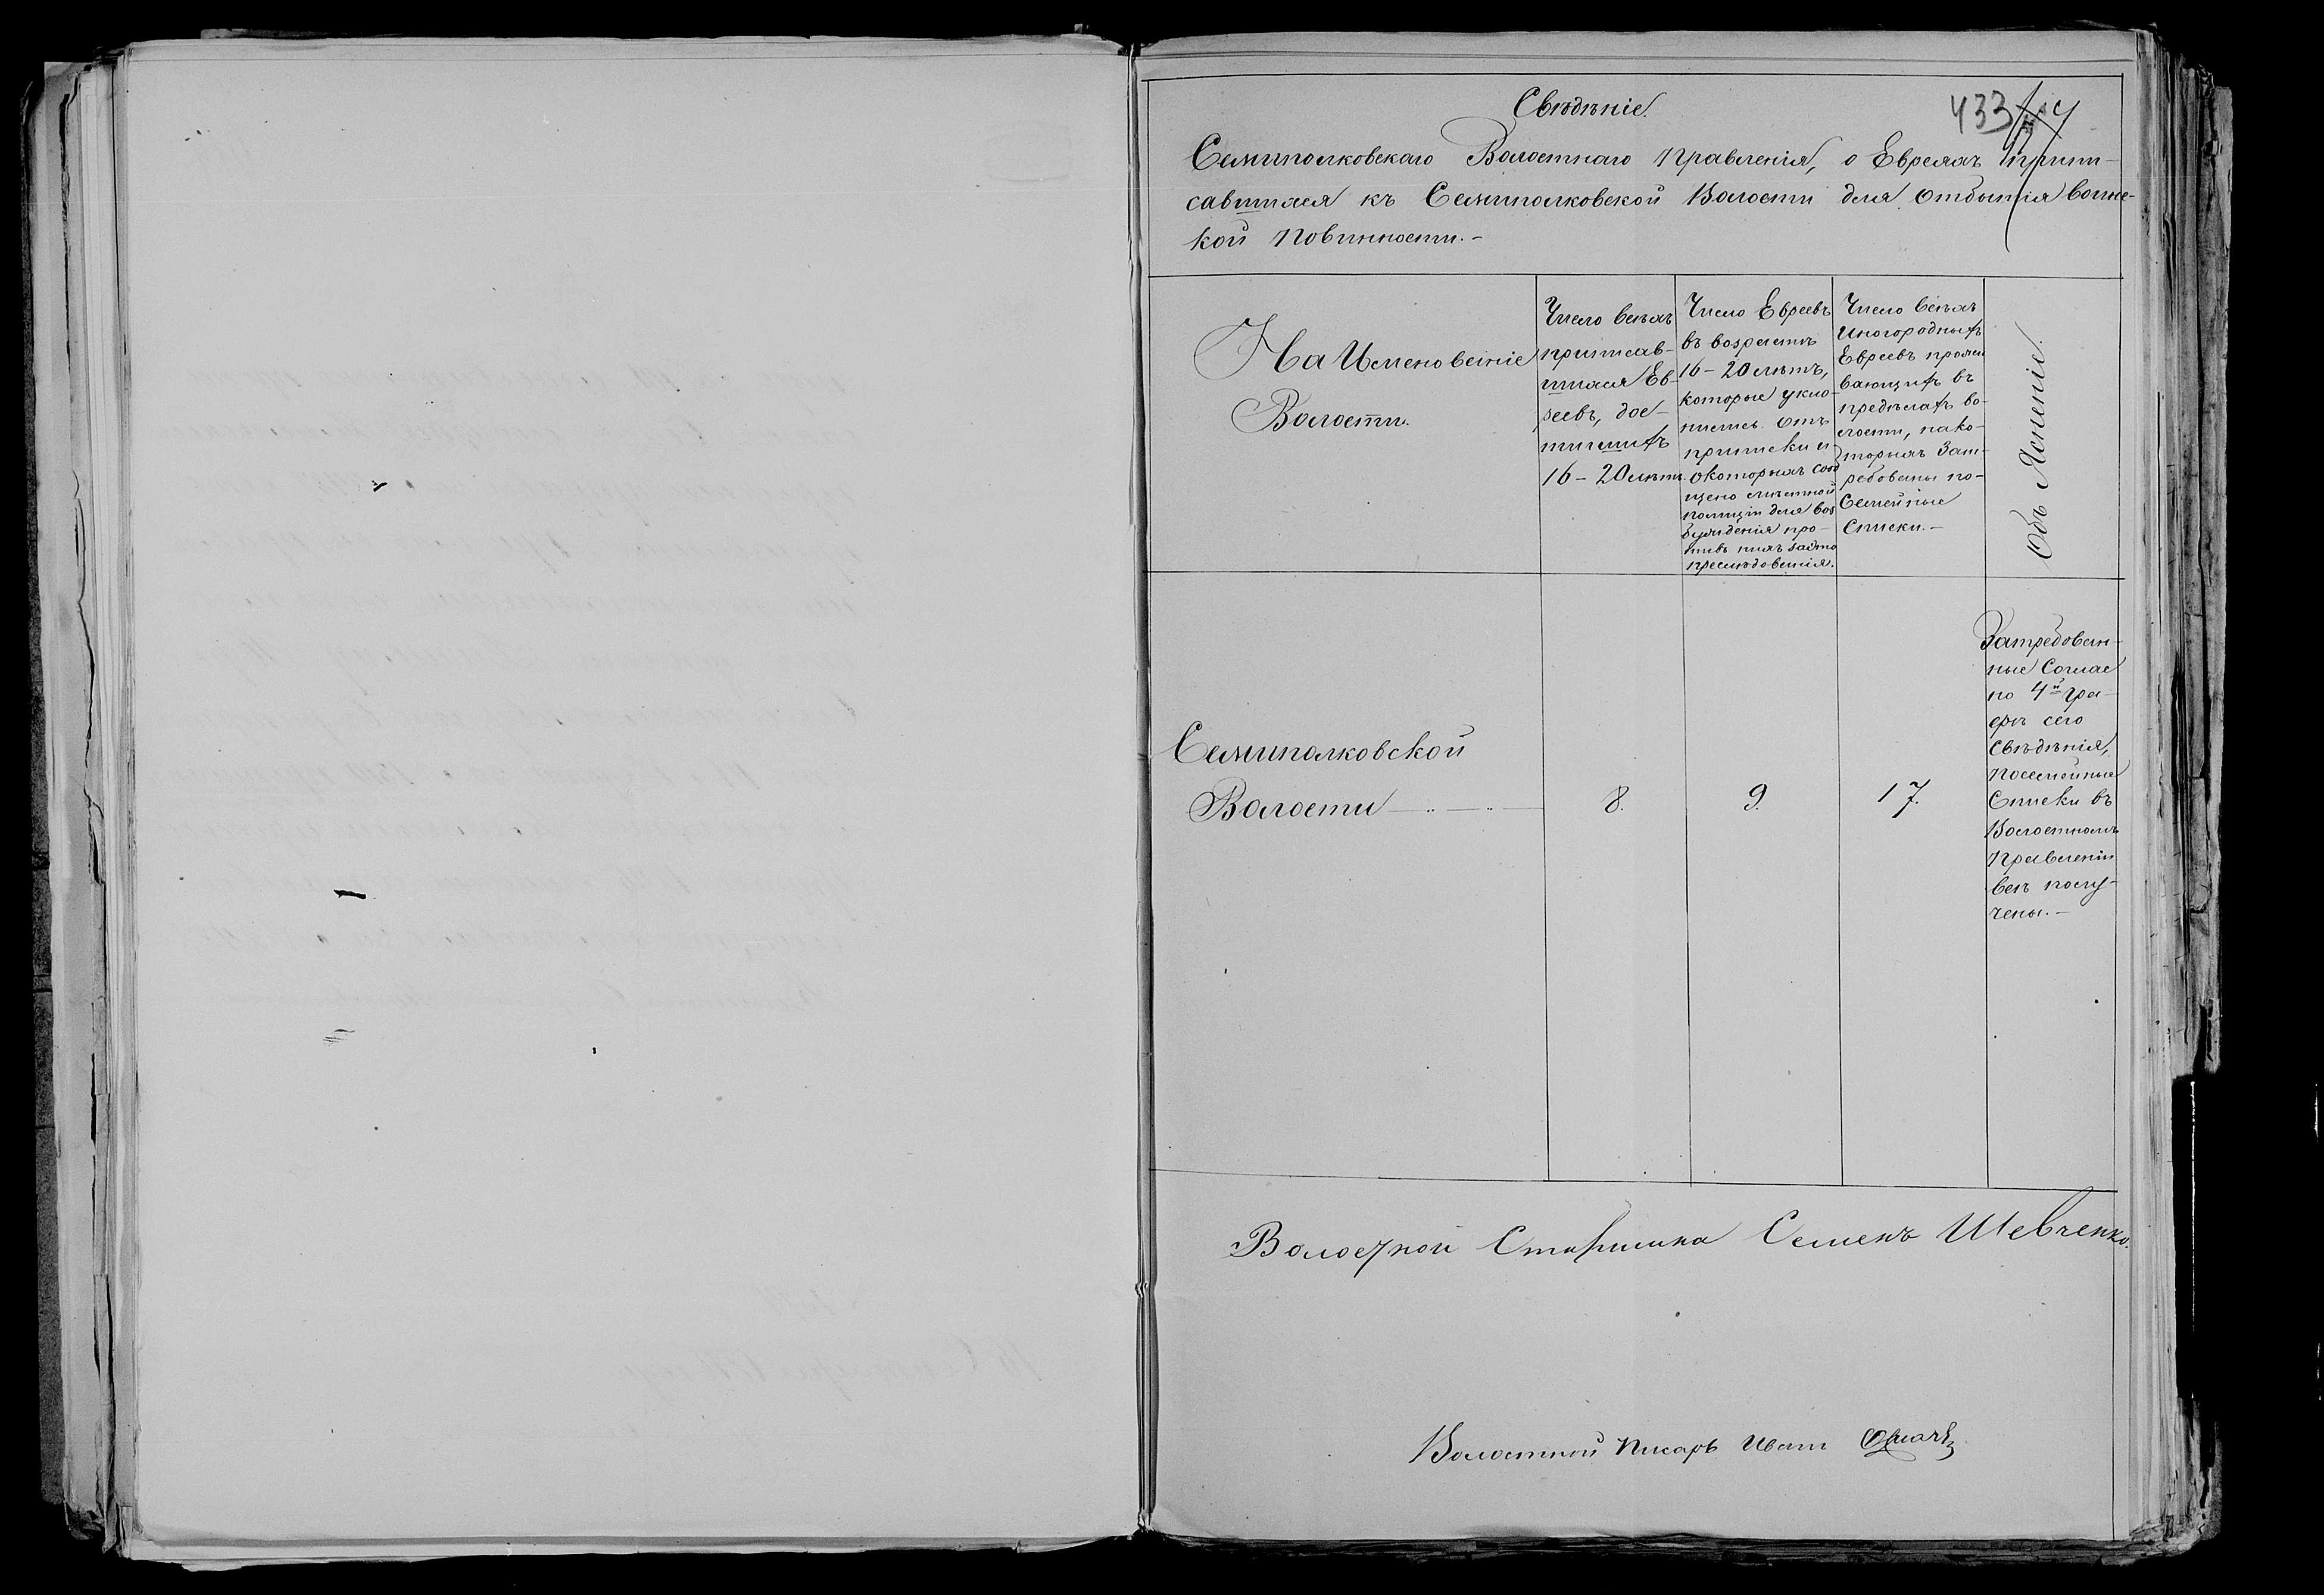 Свѣдѣніе.
433
Семиполковскаго Волостнаго Правленія, о Евреяхъ припи-
савшихся къ Семиполковской Волости для отбытія воинс-
кой повинности.-
На Именованіе
Волости.
Число всѣхъ
приписав-
шихся Ев-
реевъ, дос-
тигшихъ
16-20 лѣтъ.
Число Евреевъ
въ возрастѣ
16-20 лѣтъ,
которые укло-
нились отъ
приписки и
о которыхъ сооб
щено мѣстной
полиціи для воз
бужденія про-
тивъ нихъ
преслѣдованія.
Число всѣхъ
Иногородныхъ
Евреевъ прожи
вающихъ въ
предѣлахъ во-
лости, на ко-
торыхъ Зат-
ребованы по-
Семейные
Списки.-
Объ Ясненіе.
Семиполковской
Волости
8.
9.
17.
Затребован-
ные Соглас
но 4й гра-
фѣ сего
Свѣдѣнія,
посемейные
Списки въ
Волостномъ
Правленіи
всѣ полу-
чены.-
Волостной Старшина Семенъ Шевченко.
Волостной Писарь Иванъ